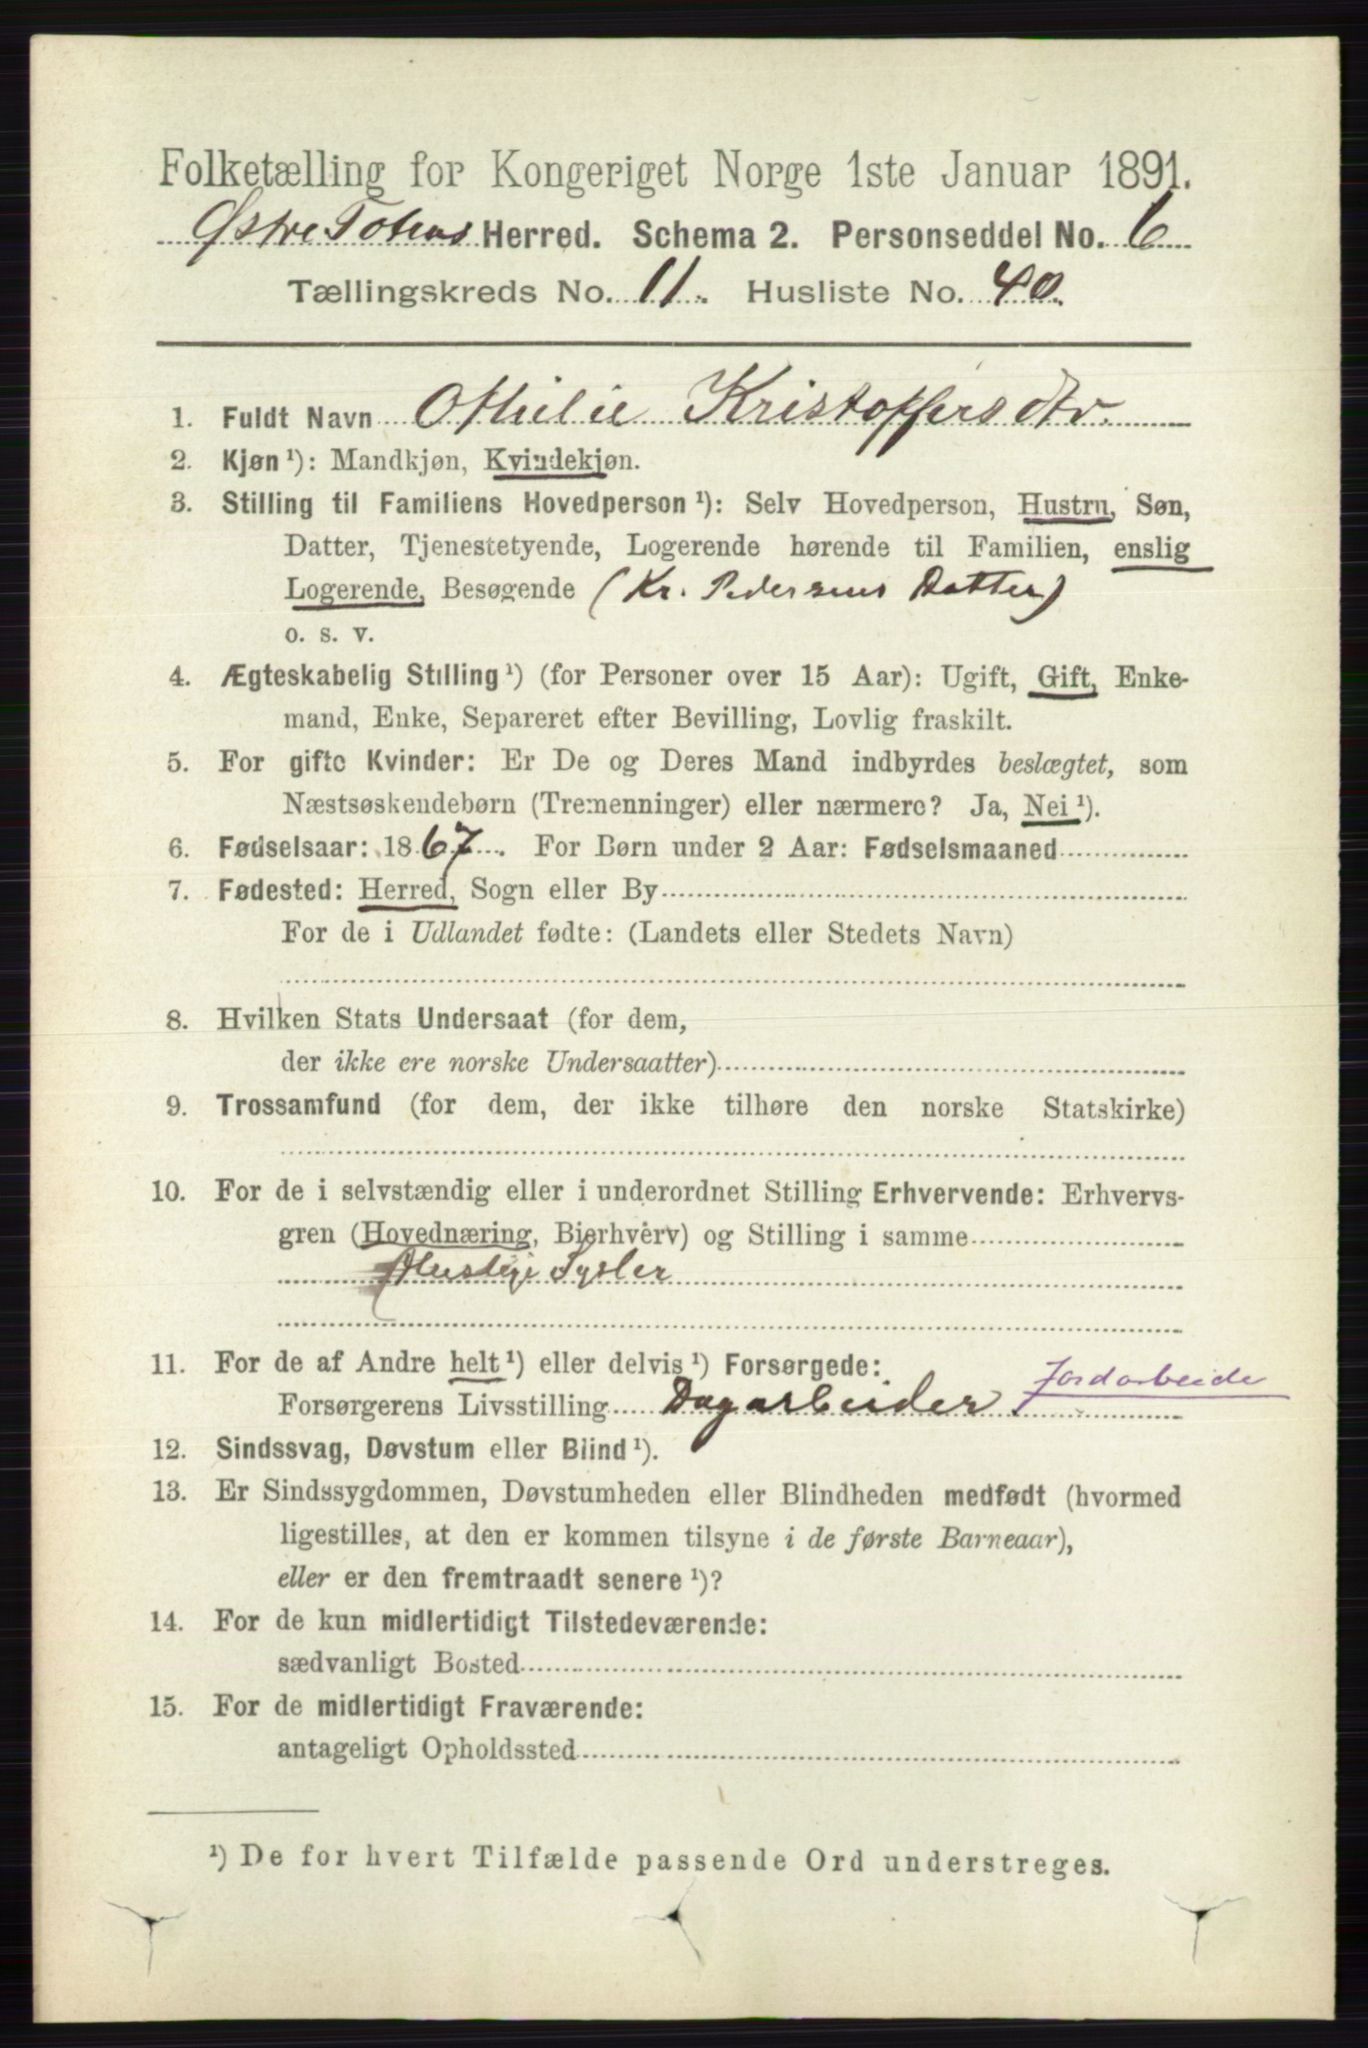 Folketælling for Kongeriget Norge 1ste Januar 1891.
Østre Totens Herred. Schema 2. Personseddel No. 6
Tællingskreds No. 11. Husliste No. 40.
1. Fuldt Navn Othilie Kristoffersdtr.
2. Kjøn ¹): Mandkjøn, Kvindekjøn.
3. Stilling til Familiens Hovedperson ¹): Selv Hovedperson, Hustru, Søn,
Datter, Tjenestetyende, Logerende hørende til Familien, enslig
Logerende, Besøgende (Kr. Pedersens Datter)
o. s. v.
4. Ægteskabelig Stilling ¹) (for Personer over 15 Aar): Ugift, Gift, Enke-
mand, Enke, Separeret efter Bevilling, Lovlig fraskilt.
5. For gifte Kvinder: Er De og Deres Mand indbyrdes beslægtet, som
Næstsøskendebørn (Tremenninger) eller nærmere? Ja, Nei ¹).
6. Fødselsaar: 1867. For Børn under 2 Aar: Fødselsmaaned
7. Fødested: Herred, Sogn eller By
For de i Udlandet fødte: (Landets eller Stedets Navn)
8. Hvilken Stats Undersaat (for dem,
der ikke ere norske Undersaatter)
9. Trossamfund (for dem, der ikke tilhøre den norske Statskirke)
10. For de i selvstændig eller i underordnet Stilling Erhvervende: Erhvervs-
gren (Hovednæring, Bierhverv) og Stilling i samme
Huslige Sysler
11. For de af Andre helt ¹) eller delvis ¹) Forsørgede:
Forsørgerens Livsstilling Dagarbeider. Jordarbeide
12. Sindssvag, Døvstum eller Blind ¹).
13. Er Sindssygdommen, Døvstumheden eller Blindheden medfødt (hvormed
ligestilles, at den er kommen tilsyne i de første Barneaar),
eller er den fremtraadt senere ¹)?
14. For de kun midlertidigt Tilstedeværende:
sædvanligt Bosted
15. For de midlertidigt Fraværende:
antageligt Opholdssted
¹) De for hvert Tilfælde passende Ord understreges.